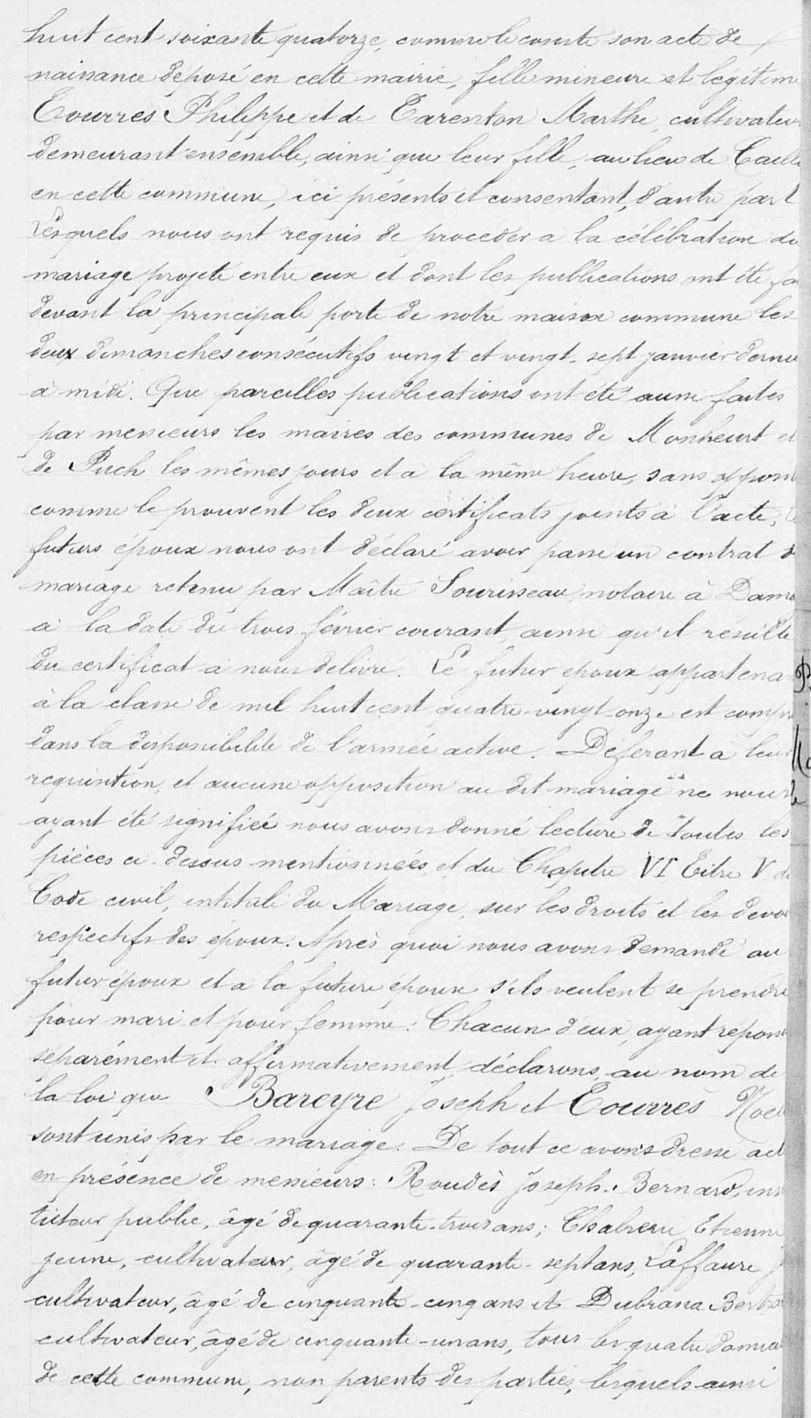 huit cent soixante quatorze, comme le couste son acte de
naissance déposé en cette mairie, fille mineure et légitime
Tourres Philippe et de Tarenton Marthe, cultivateur
demeurant ensemble, ainsi que leur fille, au lieu de
en cette commune, ici présents et consentant, d'autre part
Lesquels nous ont requis de procéder à la célébration du
mariage projeté entre eux et dont les publications ont été fa
devant la principale porte de notre maison commune les
deux dimanches consécutifs vingt et vingt-sept janvier dernie
à midi. Que pareilles publications ont été aussi faites
par messieurs les maires des communes de Monheurt et
de Puch les mêmes jours et à la même heure, sans opposi
comme le prouvent les deux certificats joints à l'acte,
futurs époux nous ont déclaré avoir passé un contrat d
mariage retenu par Maître Sourisseau, notaire à Dama
à la date du trois février courant, ainsi qu'il résulte
du certificat à nous délivré. Le futur époux appartena
à la classe de mil huit cent quatre-vingt-onze est compri
dans la disponibilité de l'armée active. Déférant à leur
réquisition, et aucune opposition au dit mariage ne nous
ayant été signifiée nous avons donné lecture de toutes les
pièces ci-dessus mentionnées, et du Chapitre VI Titre V d
Code civil, intitulé du Mariage, sur les droits et les devoi
respectifs des époux. Après quoi nous avons demandé au
futur époux et à la future épouse s'ils veulent se prendre
pour mari et pour femme. Chacun d'eux, ayant répond
séparément et affirmativement, déclarons, au nom de
la loi que Bareyre Joseph et Tourrès Noe
sont unis par le mariage. De tout ce avons dressé act
en présence de messieurs: Roudès Joseph-Bernard, ins
tituteur public, âgé de quarante-trois ans; Chabrerie Etienne
jeune, cultivateur, âgé de quarante-sept ans, Laffaure J
cultivateur, âgé de cinquante-cinq ans et Dubrana Bertra
cultivateur, âgé de cinquante-un ans, tous les quatre domici
de cette commune, non parents des parties, lesquels ainsi